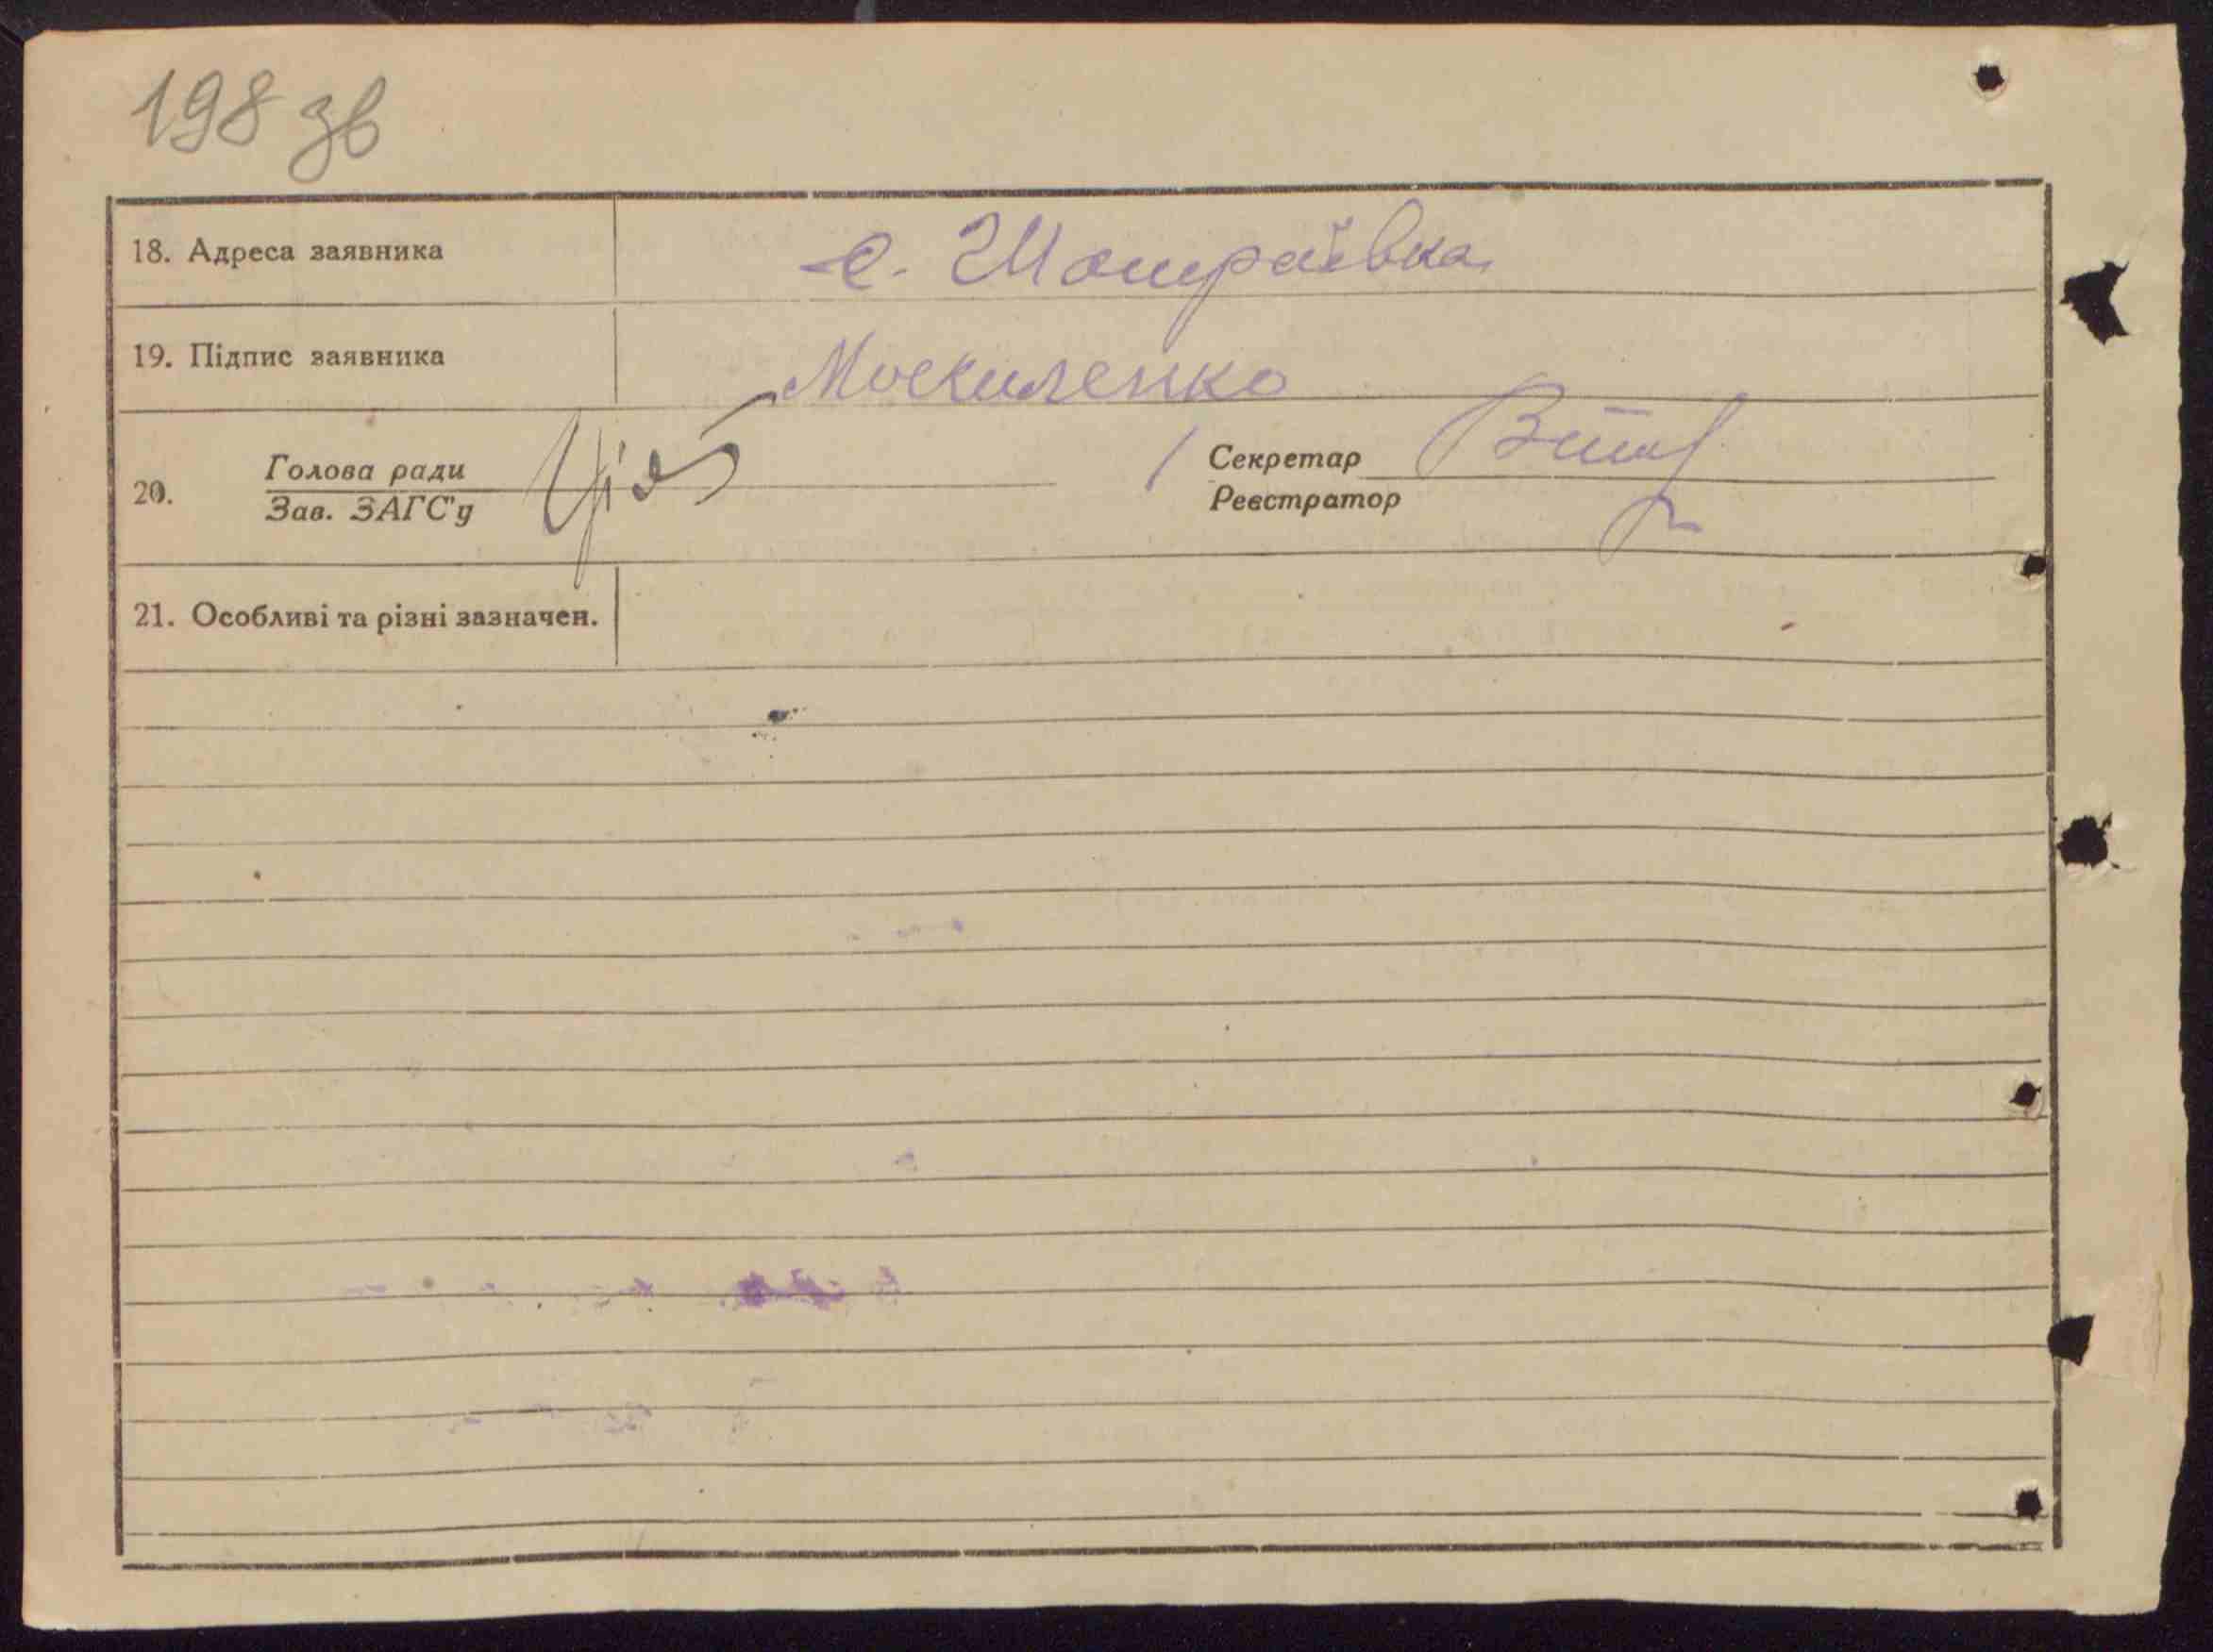 198 зв
18. Адреса заявника с. Шамраївка
19. Підпис заявника Москаленко
20. Голова ради Секретар
Зав. ЗАГС'у Реєстратор
21. Особливі та різні зазначен.